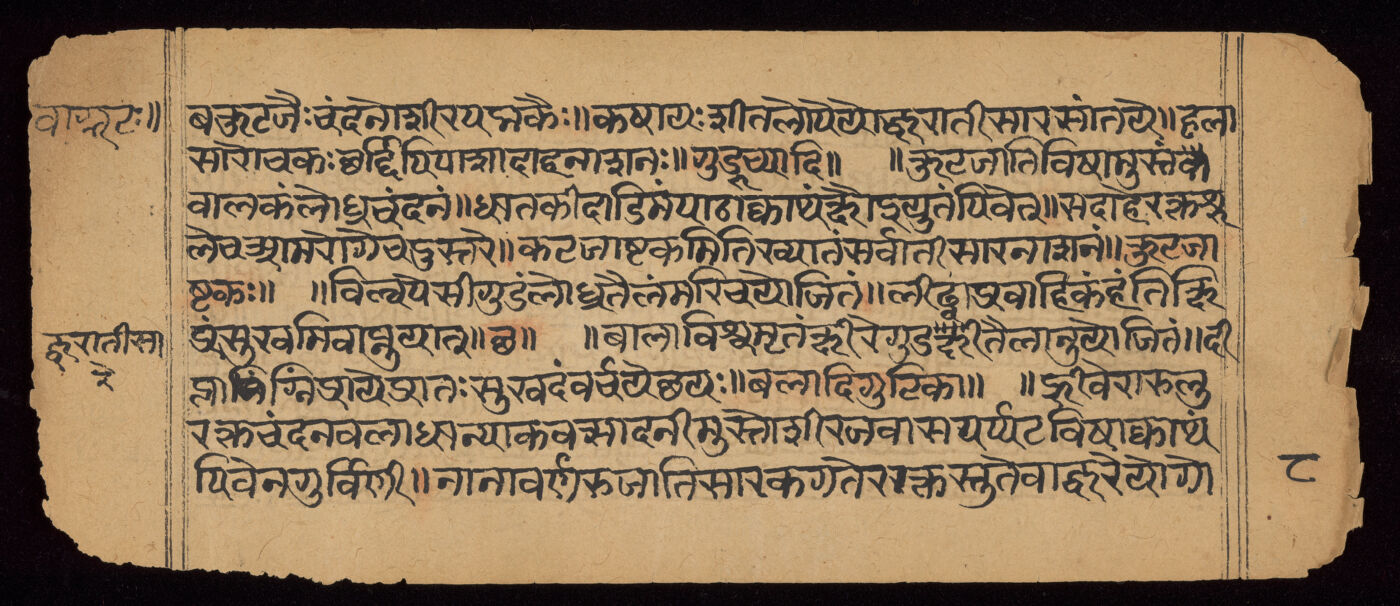 वाग्भटः॥
बकुटजैः चंदनोशीरपद्मकैः॥ कषायः शीतलो पेयो ज्वरातीसारसांतये॥ हृला
सारोचकः छर्द्दिपिपाशादाहनाशनः॥ गुडूच्यादि॥ ॥ कुटजातिविषामुस्तं
वालकं लोध्रचंदनं॥ धातकीदाडिमं पाठाक्वाथं क्षौद्रयुतं पिवेत्॥ सदाहे रक्तशू
ले च आमरोगे च दुस्तरे॥ कटजाष्टकमिति ख्यातं सर्वातीसारनाशनं॥ कुटजा
ष्टकः॥ ॥ विल्वपेसीगुडं लोध्रतैलं मरिचयोजितं॥ लीढ्वा प्रवाहिकं हंति क्षि
ज्वरातीसा
रे
प्रं सुखमिवाप्नुयात्॥ छ॥ ॥ बालाविश्वमृतं क्षीरगुड तैलानुयोजितं॥ दी
प्ता ग्निं प्राये प्रातः सुखदं वर्चये छयः॥ बलादिगुटिका॥ ॥ ह्रीवेरारुलु
रक्तचंदनवलाधान्याकवसादनीमुस्तोशीरजवासपर्प्पटविषाक्वाथं
पिवेन गुर्विणी॥ नानावर्णरुजातिसारकगतेर रक्तस्तुतेवा ज्वरे योगो
८